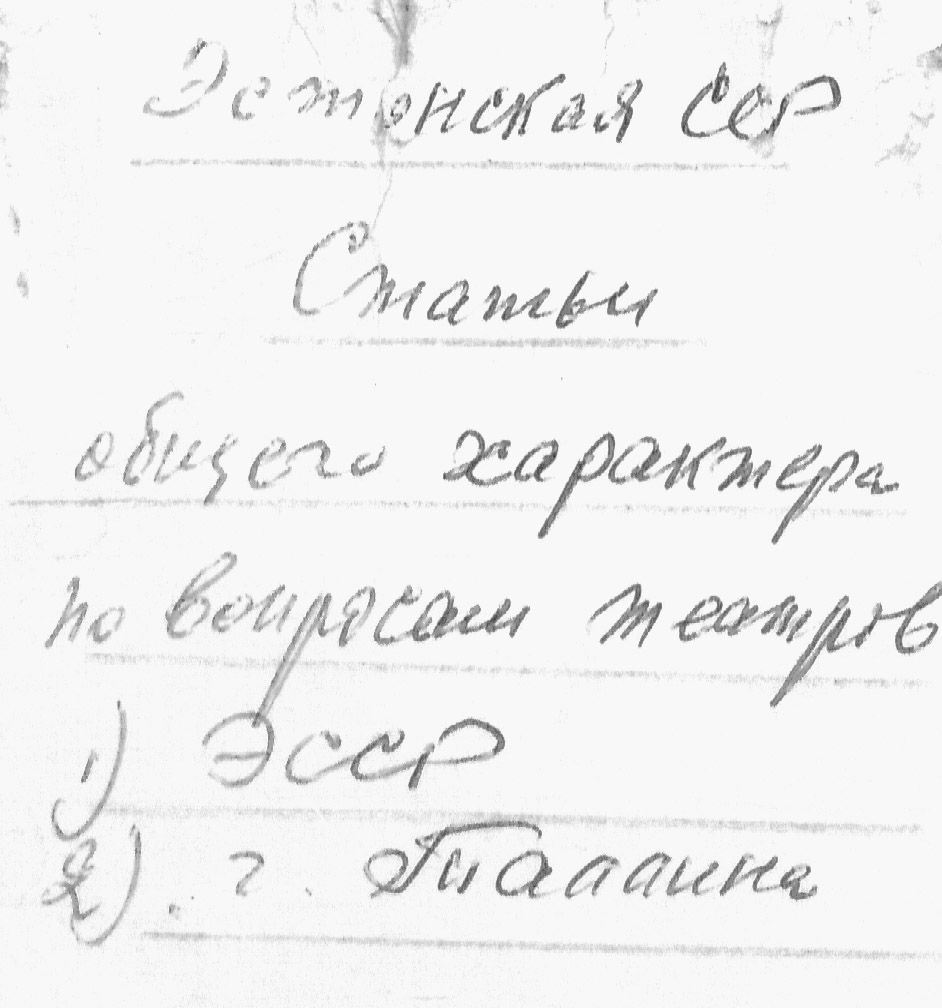 Эстонская ССР
Статьи
общего характера
по вопросам театров
1) ЭССР
2) г. Таллина